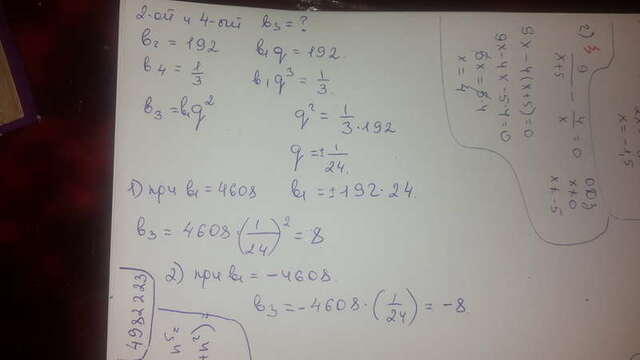 2-ой и 4-ый b3 = ?
b2 = 192 b1q = 192.
b4 = 1/3 b1q^3 = 1/3.
b3 = b1q^2 q^2 = 1/(3·192)
q = ± 1/24.
1) при b1 = 4608 b1 = ±192·24.
b3 = 4608·(1/24)^2 = 8
2) при b1 = -4608.
b3 = -4608·(1/24) = -8.
2) 9/(x+5) - 4/x = 0 ОДЗ
x≠0
x≠-5
9x-4(x+5)=0
x = -1,5
4982223